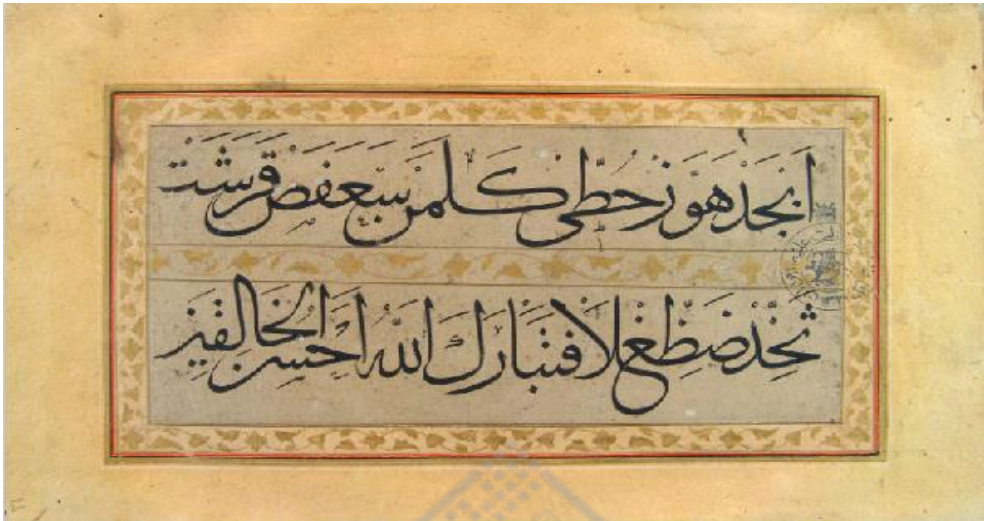 اَبْجَدْ هَوَّزْ حُطِّي كَلَمَنْ سَعَفَصْ قَرَشَتْ
ثَخَّذْ ضَظِّغْلا فَتَبَارَكَ اللهُ اَحْسَنُ الْخَالِقِينَ